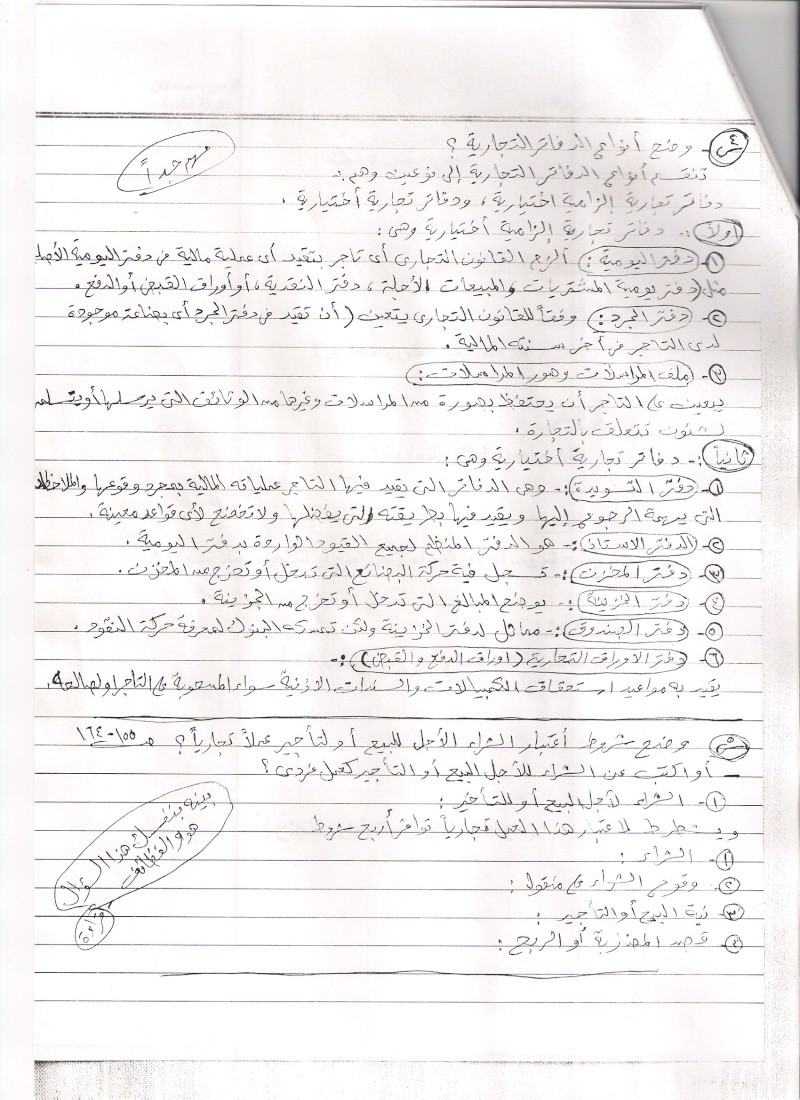 س٤- وضح أنواع الدفاتر التجارية ؟
مهم جداً
تنقسم أنواع الدفاتر التجارية إلى نوعين وهم :-
دفاتر تجارية إلزامية اختيارية ، ودفاتر تجارية أختيارية .
أولاً :- دفاتر تجارية إلزامية أختيارية وهى :
١- دفتر اليومية : ألزم القانون التجارى أى تاجر بتقيد أى عملية مالية فى دفتر اليومية الأصل
مثل ( دفتر يومية المشتريات والمبيعات الأجلة ، دفتر النقدية ، أو أوراق القبض أو الدفع .
٢- دفتر الجرد : وفقاً للقانون التجارى يتعين ( أن تقيد فى دفتر الجرد أى بضاعة موجودة
لدى التاجر فى أخر سنته المالية .
٣- ملف المراسلات وصور المراسلات :
يتعين على التاجر أن يحتفظ بصورة من المراسلات وغيرها من الوثائق التى يرسلها أو يتسلمه
لشئون تتعلق بالتجارة .
ثانياً :- دفاتر تجارية أختيارية وهى :
١- دفتر التسويدة :- وهى الدفاتر التى يقيد فيها التاجر عملياته المالية بمجرد وقوعها والملاحظات
التى يهمه الرجوع إليها ويقيد فيها بطريقته التى يفضلها ولا تخضع لأى قواعد معينة .
٢- الدفتر الاستاذ :- هو الدفتر المنظم لجميع القيود الواردة بدفتر اليومية .
٣- دفتر المخزن :- تسجل فية حركة البضائع التى تدخل أو تخرج من المخزن .
٤- دفتر الخزينة :- يوضح المبالغ التى تدخل أو تخرج من الخزينة .
٥- دفتر الصندوق :- مماثل لدفتر الخزينة ولكن تمسكه البنوك لمعرفة حركة النقود .
٦- دفتر الاوراق التجارية ( اوراق الدفع والقبض ) :-
يقيد به مواعيد استحقاق الكمبيالات والسندات الاذنية سواء المسحوبة على التاجر او لصالحه .
س٥- وضح شروط أعتبار الشراء الأجل للبيع أو لتأجير عملاً تجارياً ؟ صـ ١٥٥-١٦٤
- أو اكتب عن الشراء للأجل البيع أو التأجير كعمل فردى ؟
١- الشراء لأجل البيع أو للتأخير :
ويشترط لاعتبار هذا العمل تجارياً توافر أربع شروط
١- الشراء :
٢- وقوع الشراء على منقول :
٣- نية البيع أو التأجير :
٤- قصد المضاربة أو الربح :
بينه بنفسك هذا السؤال
هو و
قراءة